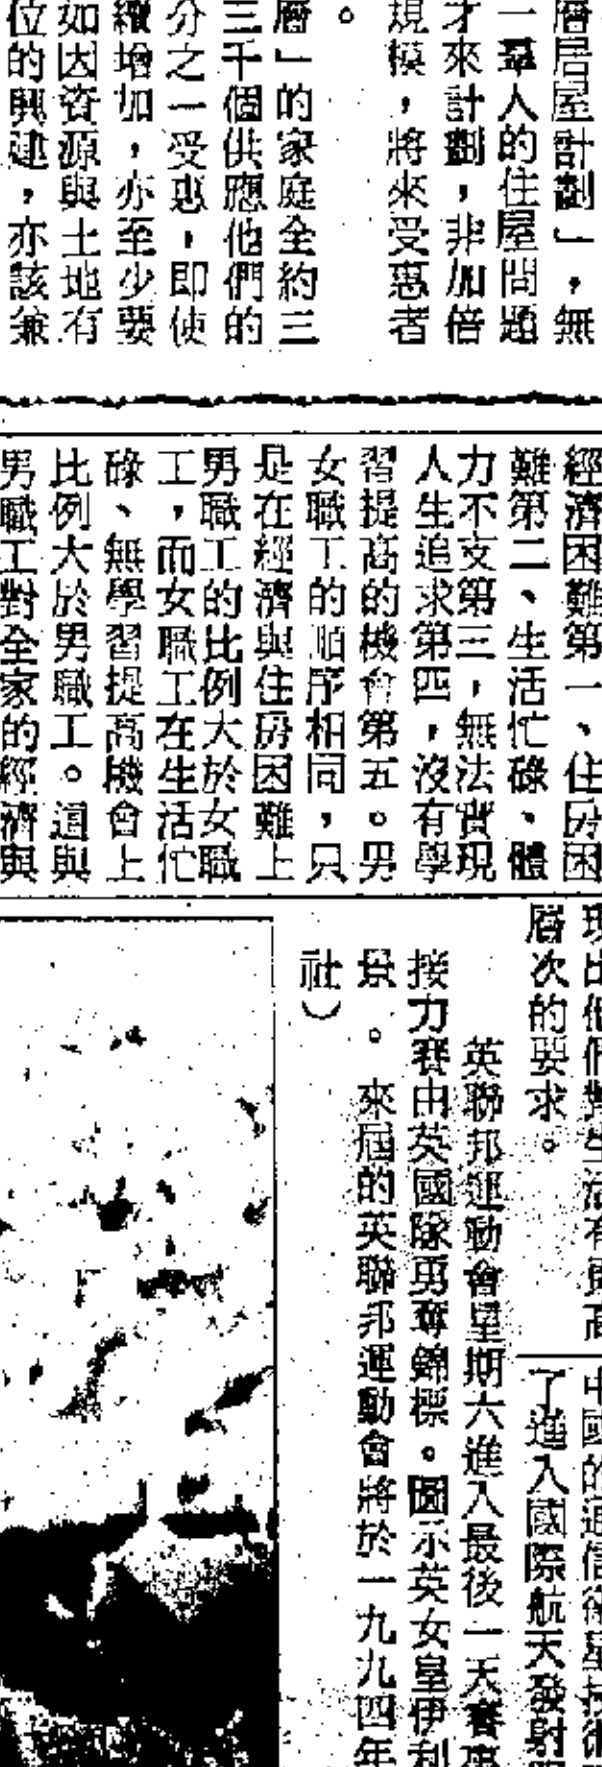 層居屋計劃」，無
一羣人的住屋問題
才來計劃，非加倍
規模，將來受惠者
。
層」的家庭全約三
三千個供應他們的
分之一受惠，即使
續增加，亦至少要
如因資源與土地有
位的興建，亦該兼
經濟困難第一、住房困
難第二、生活忙碌、體
力不支第三，無法實現
人生追求第四，沒有學
習提高的機會第五。男
女職工的順序相同，只
是在經濟與住房困難上
男職工的比例大於女職
工，而女職工在生活忙
碌、無學習提高機會上
比例大於男職工。這與
男職工對全家的經濟與
現出他們對生活有更高
層次的要求。
中國的通信衛星技術
了進入國際航天發射
英聯邦運動會星期六進入最後一天賽事
接力賽由英國隊勇奪錦標。圖示英女皇伊利
景。來屆的英聯邦運動會將於一九九四年
社）